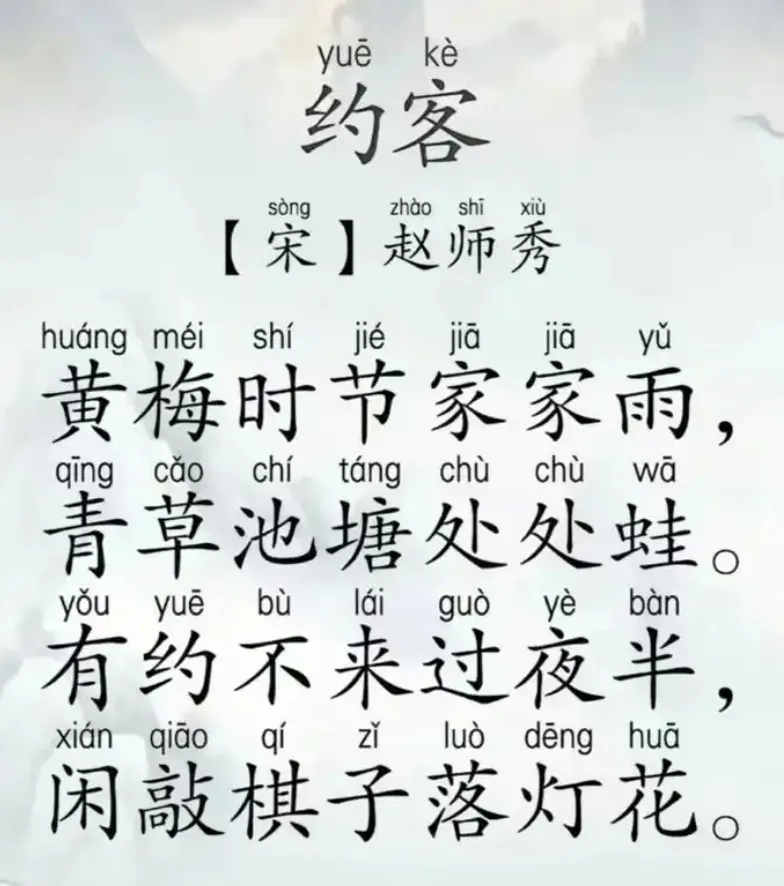 yuē kè
约客
sòng zhào shī xiù
【宋】赵师秀
huáng méi shí jié jiā jiā yǔ
黄梅时节家家雨，
qīng cǎo chí táng chù chù wā
青草池塘处处蛙。
yǒu yuē bù lái guò yè bàn
有约不来过夜半，
xián qiāo qí zǐ luò dēng huā
闲敲棋子落灯花。